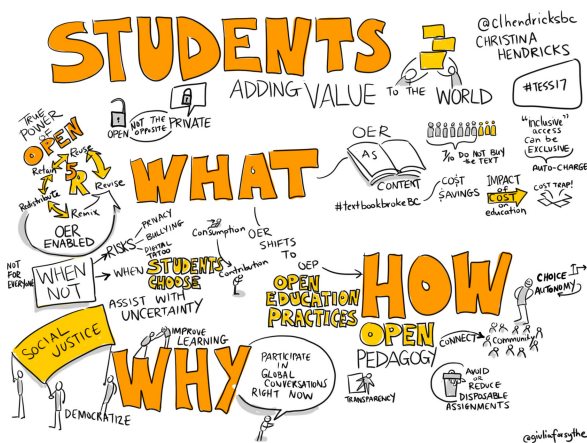 STUDENTS
ADDING VALUE TO THE WORLD
@clhendricksbc
CHRISTINA
HENDRICKS
#TESS17
TRUE
POWER
OF
OPEN
5R
Reuse
Revise
Remix
Redistribute
Retain
OER
ENABLED
OPEN
NOT THE
OPPOSITE
PRIVATE
WHAT
OER
AS
CONTENT
7/10 DO NOT BUY
the TEXT
#textbookbrokeBC
COST
SAVINGS
IMPACT
of
COST
on
education
"inclusive"
access
can be
EXCLUSIVE
AUTO-CHARGE
COST TRAP!
NOT
FOR
EVERYONE
WHEN
NOT
RISKS
PRIVACY
BULLYING
DIGITAL
TATOO
WHEN STUDENTS
CHOOSE
ASSIST WITH
UNCERTAINTY
Consumption
Contribution
OER
SHIFTS
TO
OEP
OPEN
EDUCATION
PRACTICES
HOW
OPEN
PEDAGOGY
CHOICE
AUTONOMY
CONNECT
Community
TRANSPARENCY
AVOID
OR
REDUCE
DISPOSABLE
ASSIGNMENTS
WHY
SOCIAL
JUSTICE
DEMOCRATIZE
IMPROVE
LEARNING
PARTICIPATE
IN
GLOBAL
CONVERSATIONS
RIGHT NOW
@giuliaforsythe